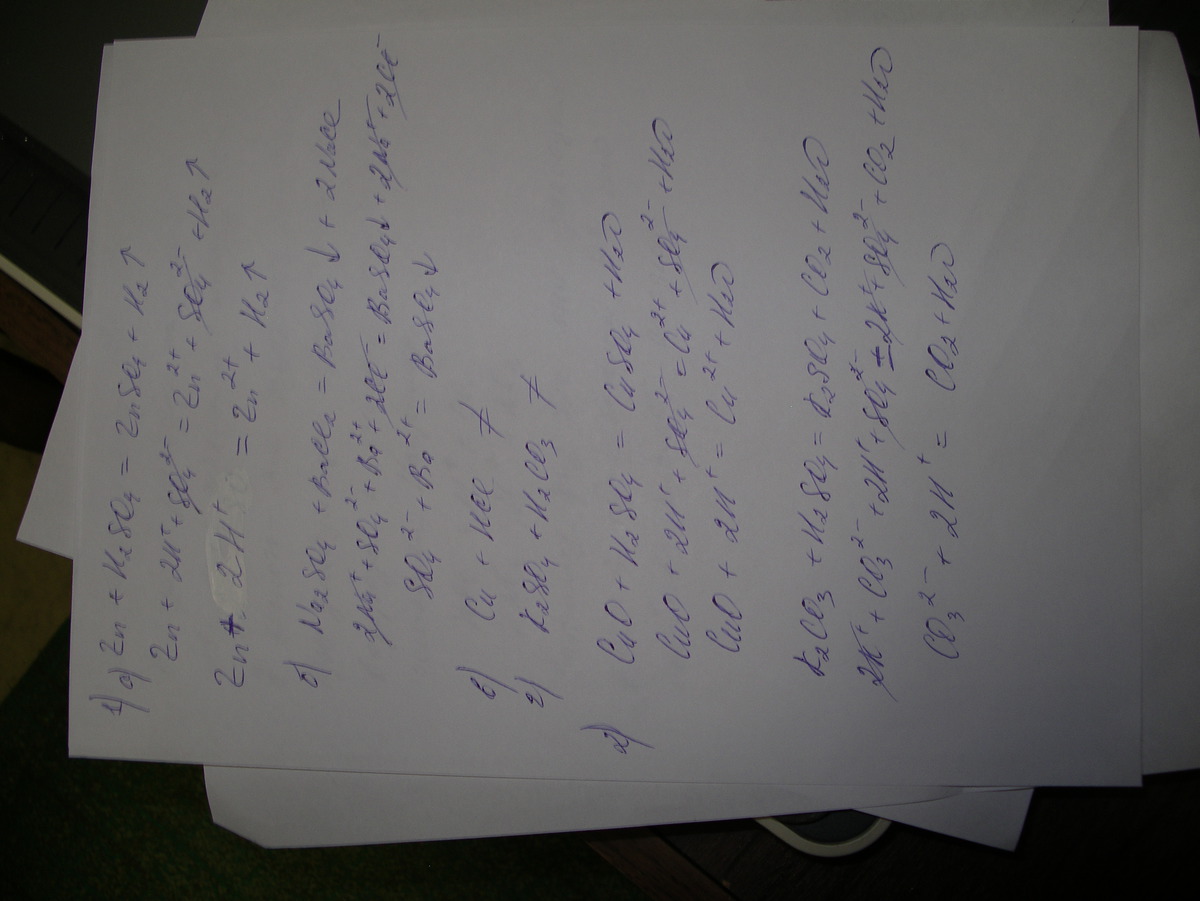 1) а) Zn + H₂SO₄ = ZnSO₄ + H₂↑
Zn + 2H⁺ + SO₄²⁻ = Zn²⁺ + SO₄²⁻ + H₂↑
Zn + 2H⁺ = Zn²⁺ + H₂↑
б) Na₂SO₄ + BaCl₂ = BaSO₄↓ + 2NaCl
2Na⁺ + SO₄²⁻ + Ba²⁺ + 2Cl⁻ = BaSO₄↓ + 2Na⁺ + 2Cl⁻
SO₄²⁻ + Ba²⁺ = BaSO₄↓
в) Cu + HCl ≠
г) K₂SO₄ + H₂CO₃ ≠
2) CuO + H₂SO₄ = CuSO₄ + H₂O
CuO + 2H⁺ + SO₄²⁻ = Cu²⁺ + SO₄²⁻ + H₂O
CuO + 2H⁺ = Cu²⁺ + H₂O
K₂CO₃ + H₂SO₄ = K₂SO₄ + CO₂ + H₂O
2K⁺ + CO₃²⁻ + 2H⁺ + SO₄²⁻ = 2K⁺ + SO₄²⁻ + CO₂ + H₂O
CO₃²⁻ + 2H⁺ = CO₂ + H₂O